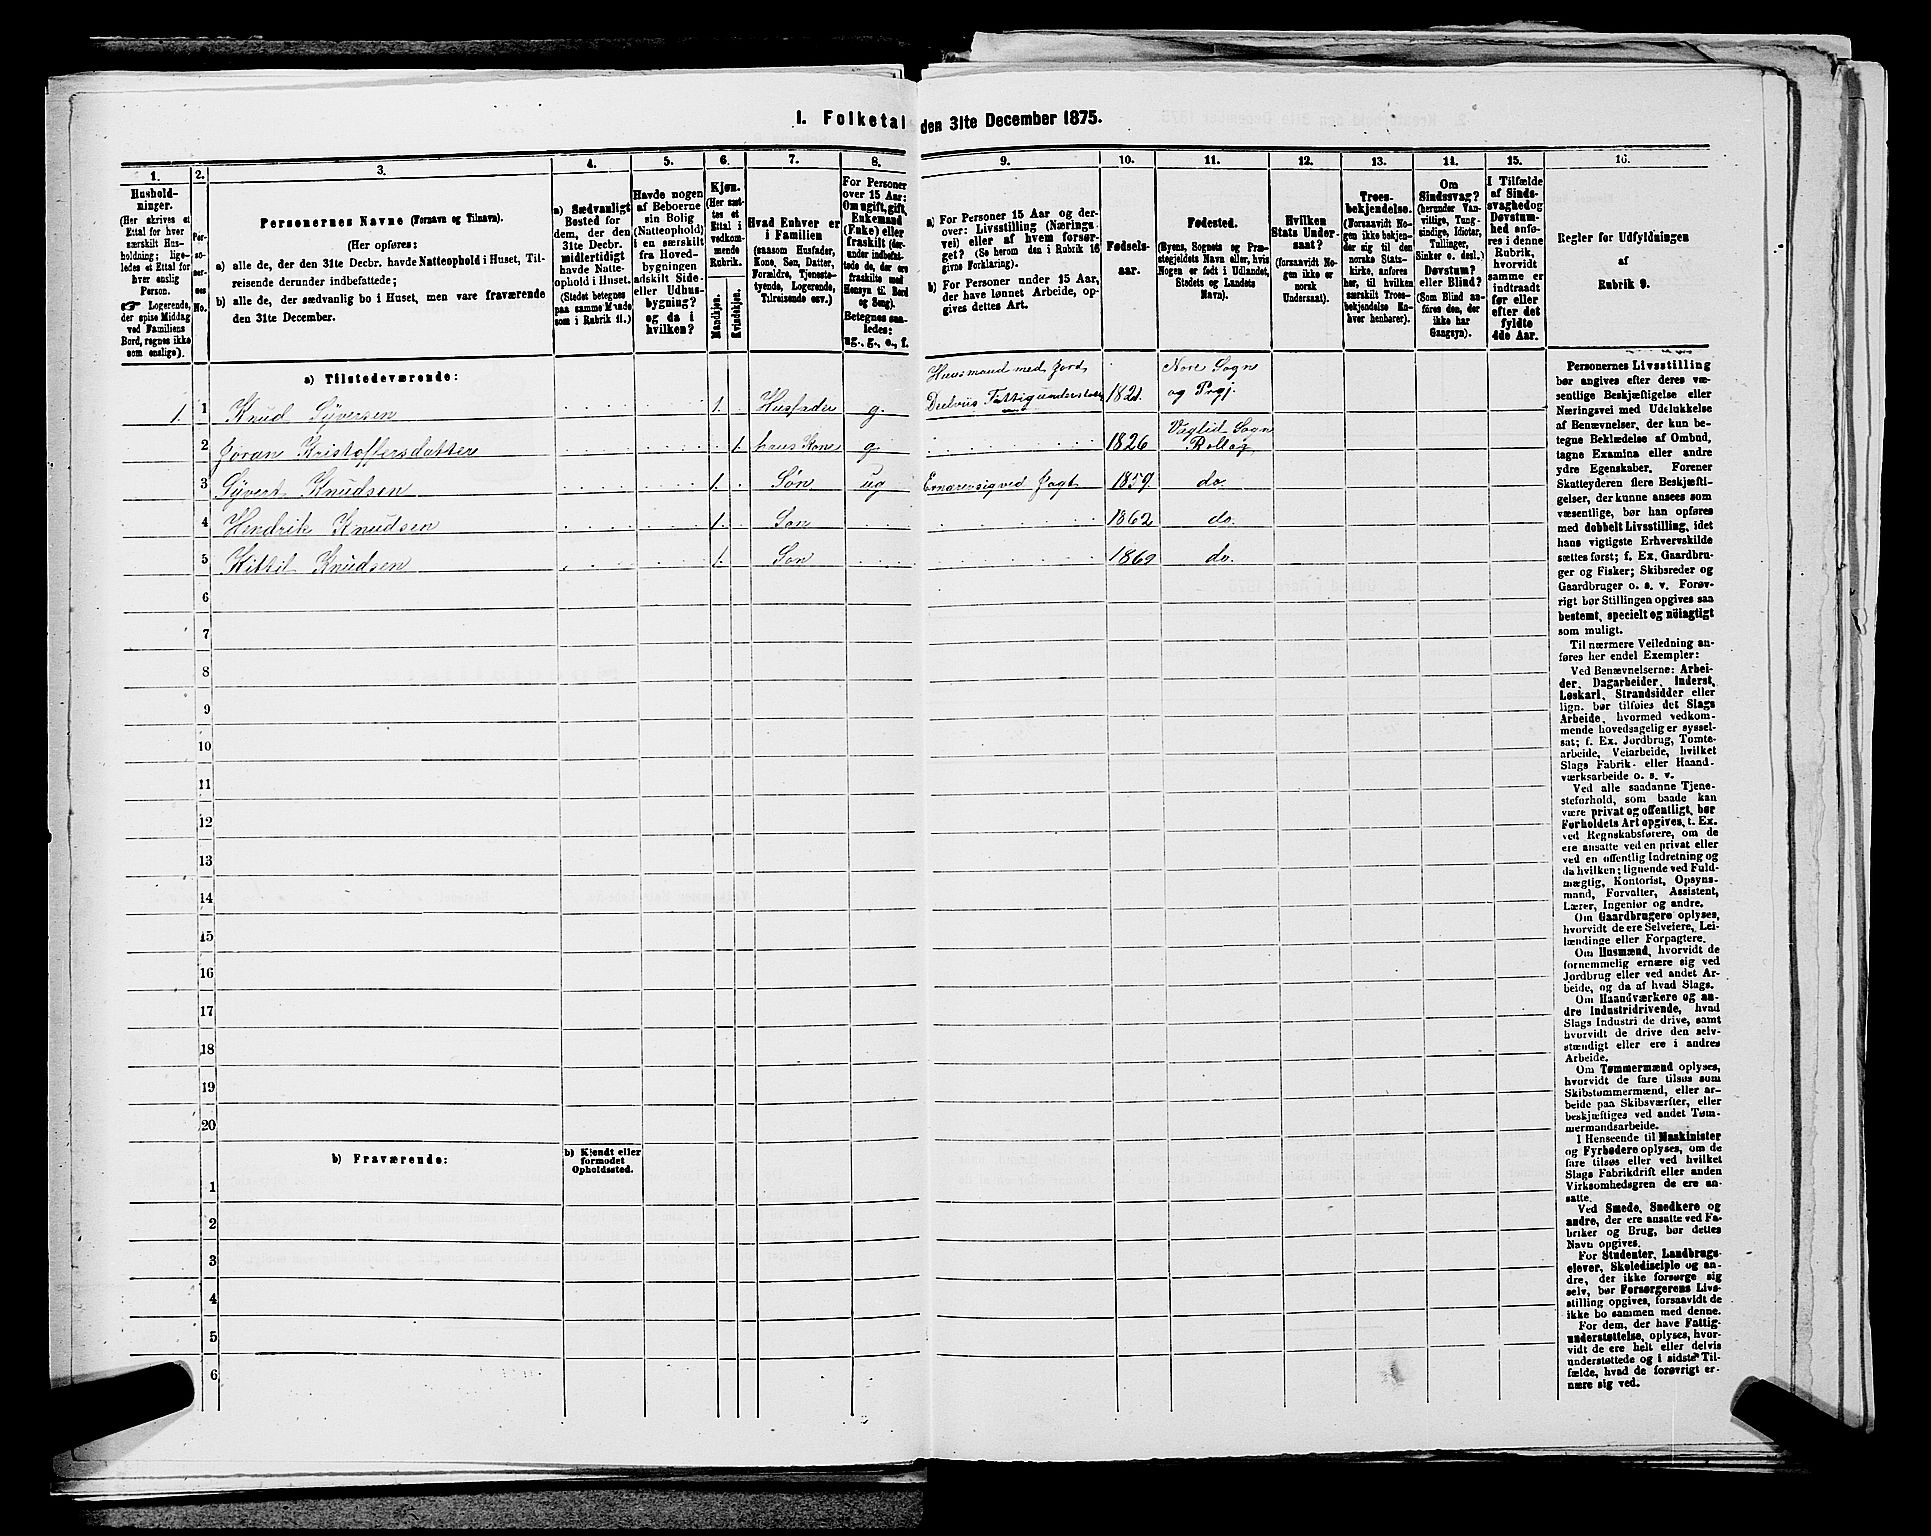 I. Folketal den 31te December 1875.
1. 2. 3. 4. 5. 6. 7. 8. 9. 10. 11. 12. 13. 14. 15. 16.
Hushold-
ninger.
(Her skrives et
Ettal for hver
særskilt Hus-
holdning; lige-
ledes et Ettal for
hver enslig
Person.
☞ Logerende,
der spise Middag
ved Familiens
Bord, regnes ikke
som enslige).
Per-
so-
ner-
nes
No.
Personernes Navne (Fornavn og Tilnavn).
(Her opføres:
a) alle de, der den 31te Decbr. havde Natteophold i Huset, Til-
reisende derunder indbefattede;
b) alle de, der sædvanlig bo i Huset, men vare fraværende
den 31te December.
a) Sædvanligt
Bosted for
dem, der den
31te Decbr.
midlertidigt
havde Natte-
ophold i Huset.
(Stedet betegnes
paa samme Maade
som i Rubrik 11.)
Havde nogen
af Beboerne
sin Bolig
(Natteophold)
i en særskilt
fra Hoved-
bygningen
adskilt Side-
eller Udhus-
bygning?
og da i
hvilken?
Kjøn.
(Her sæt-
tes et
Ettal i
vedkom-
mende
Rubrik.
Mandkjøn.
Kvindekjøn.
Hvad Enhver er
i Familien
(saasom Husfader,
Kone, Søn, Datter,
Forældre, Tjeneste-
tyende, Logerende,
Tilreisende osv.)
For Personer
over 15 Aar:
Om ugift, gift,
Enkemand
(Enke) eller
fraskilt (der-
under indbefat-
tede de, der ere
fraskilte med
Hensyn til Bord
og Seng).
Betegnes saa-
ledes:
ug., g., e., f.
a) For Personer 15 Aar og der-
over: Livsstilling (Nærings-
vei) eller af hvem forsør-
get? (Se herom den i Rubrik 16
givne Forklaring).
b) For Personer under 15 Aar,
der have lønnet Arbeide, op-
gives dettes Art.
Fødsels-
aar.
Fødested.
(Byens, Sognets og Præ-
stegjeldets Navn eller, hvis
Nogen er født i Udlandet,
Stedets og Landets
Navn).
Hvilken
Stats Under-
saat?
(forsaavidt No-
gen ikke er
norsk
Undersaat).
Troes-
bekjendelse.
(Forsaavidt No-
gen ikke bekjen-
der sig til den
norske Stats-
kirke, anføres
her, til hvilken
særskilt Troes-
bekjendelse En-
hver henhører).
Om
Sindssvag?
(herunder Van-
vittige, Tung-
sindige, Idioter,
Tullinger,
Sinker o. desl.)
Døvstum?
eller Blind?
(Som Blind an-
føres den, der
ikke har
Gangsyn).
I Tilfælde
af Sinds-
svaghed og
Døvstum-
hed anfø-
res i denne
Rubrik,
hvorvidt
samme er
indtraadt
før eller
efter det
fyldte
4de Aar.
Regler for Udfyldningen
af
Rubrik 9.
a) Tilstedeværende:
Huusmand med Jord
Nore Sogn
1. 1 Knud Syversen 1. Husfader g. Deelviis Fattigunderstøttet 1821. og Prgj.
Væglid Sogn
2 Joran Kristoffersdatter 1. hans Kone g 1826 Rollag
3 Syvert Knudsen 1. Søn ug Ernærer sig ved Jagt 1859. do.
4 Hendrik Knudsen 1. Søn 1862 do.
5 Kittil Knudsen 1. Søn 1869 do.
6
7
8
9
10
11
12
13
14
15
16
17
18
19
20
b) Fraværende:
b) Kjendt eller
formodet
Opholdssted.
1
2
3
4
5
6
Personernes Livsstilling
bør angives efter deres væ-
sentlige Beskjæftigelse eller
Næringsvei med Udelukkelse
af Benævnelser, der kun be-
tegne Beklædelse af Ombud,
tagne Examina eller andre
ydre Egenskaber. Forener
Skatteyderen flere Beskjæfti-
gelser, der kunne ansees som
væsentlige, bør han opføres
med dobbelt Livsstilling, idet
hans vigtigste Erhvervskilde
sættes først; f. Ex. Gaardbru-
ger og Fisker; Skibsreder og
Gaardbruger o. s. v. Forøv-
rigt bør Stillingen opgives saa
bestemt, specielt og nöiagtigt
som muligt.
Til nærmere Veiledning an-
føres her endel Exempler:
Ved Benævnelserne: Arbei-
der, Dagarbeider, Inderst,
Løskarl, Strandsidder eller
lign. bør tilføies det Slags
Arbeide, hvormed vedkom-
mende hovedsagelig er syssel-
sat; f. Ex. Jordbrug, Tomte-
arbeide, Veiarbeide, hvilket
Slags Fabrik- eller Haand-
værksarbeide o. s. v.
Ved alle saadanne Tjene-
steforhold, som baade kan
være privat og offentligt, bør
Forholdets Art opgives, t. Ex.
ved Regnskabsførere, om de
ere ansatte ved en privat eller
ved en offentlig Indretning og
da hvilken; lignende ved Fuld-
mægtig, Kontorist, Opsyns-
mand, Forvalter, Assistent,
Lærer, Ingeniør og andre.
Om Gaardbrugere oplyses,
hvorvidt de ere Selveiere, Lei-
lændinge eller Forpagtere.
Om Husmænd, hvorvidt de
fornemmelig ernære sig ved
Jordbrug eller ved andet Ar-
beide, og da af hvad Slags.
Om Haandværkere og an-
dre Industridrivende, hvad
Slags Industri de drive, samt
hvorvidt de drive den selv-
stændigt eller ere i andres
Arbeide.
Om Tømmermænd oplyses,
hvorvidt de fare tilsøs som
Skibstømmermænd, eller ar-
beide paa Skibsværfter, eller
beskjæftiges ved andet Tøm-
mermandsarbeide.
I Henseende til Maskinister
og Fyrbødere oplyses, om de
fare tilsøs eller ved hvilket
Slags Fabrikdrift eller anden
Virksomhedsgren de ere an-
satte.
Ved Smede, Snedkere og
andre, der ere ansatte ved Fa-
briker og Brug, bør dettes
Navn opgives.
For Studenter, Landbrugs-
elever, Skoledisciple og an-
dre, der ikke forsørge sig
selv, bør Forsørgerens Livs-
stilling opgives, forsaavidt de
ikke bo sammen med denne.
For dem, der have Fattig-
understøttelse, oplyses, hvor-
vidt de ere helt eller delvis
understøttede og i sidste Til-
fælde, hvad de forøvrigt er-
nære sig ved.